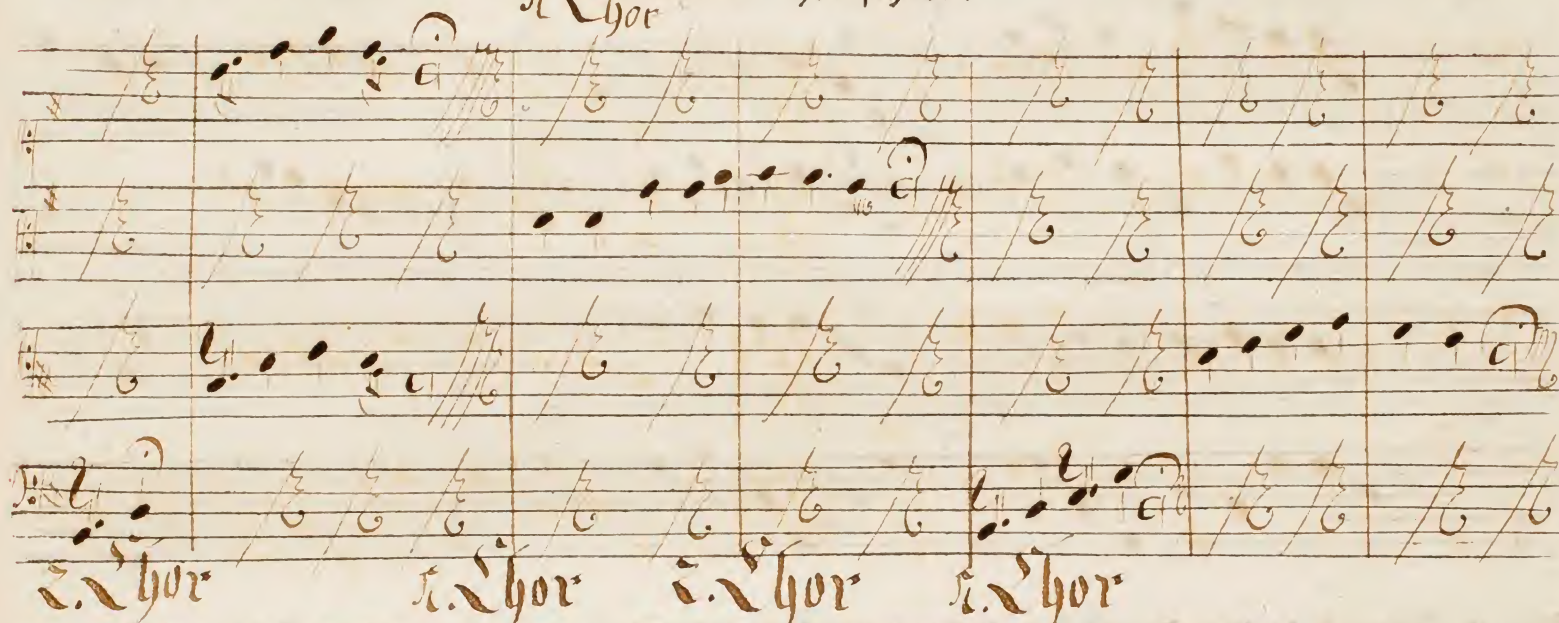 Chor
2. Chor 1. Chor 2. Chor 1. Chor